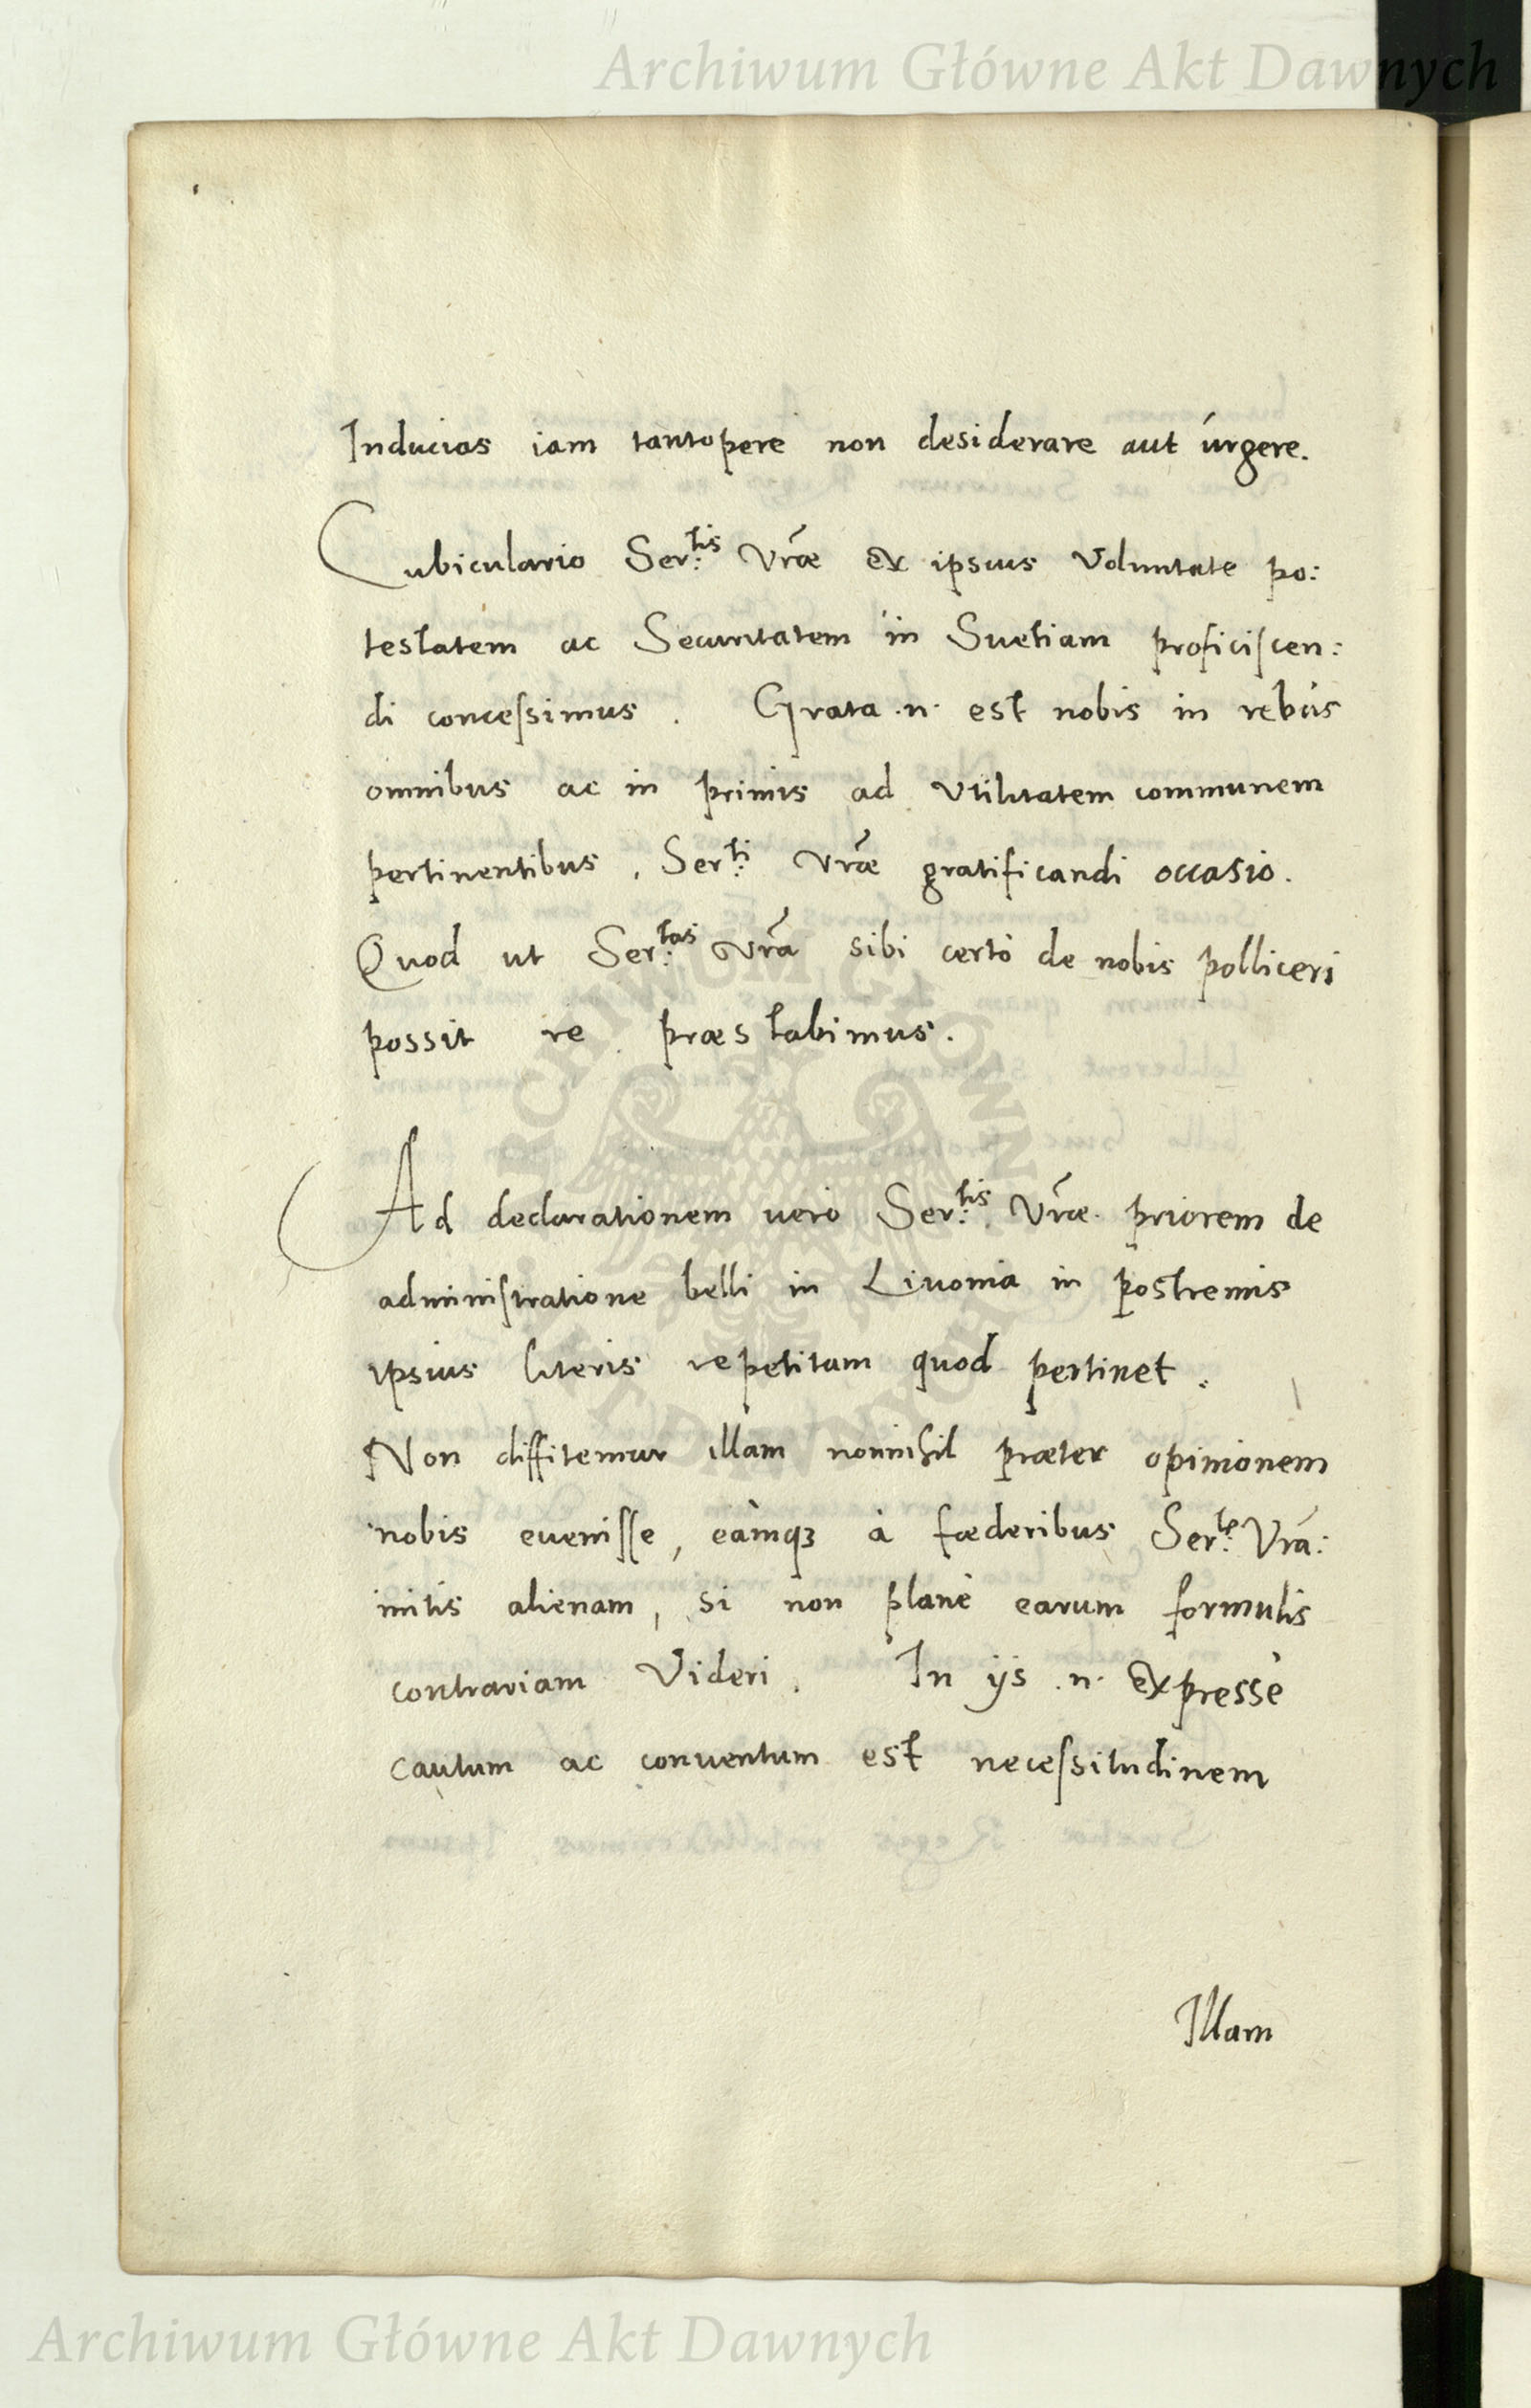 Archiwum Główne Akt Dawnych
Inducias iam tantopere non desiderare aut úrgere.
Cubiculario Ser:tis Vrãe ex ipsius Voluntate po:
testatem ac Securitatem in Suetiam proficiſcen:
di conceſsimus. Grata .n. est nobis in rebús
omnibus ac in primis ad Vtilitatem communem
pertinentibus, Ser:ti Vrãe gratificandi occasio.
Quod ut Ser:tas Vrã sibi certò de nobis polliceri
possit re præstabimus.
Ad declarationem uero Ser:tis Vrãe priorem de
adminiſtratione belli in Liuonia in postremis
ipsius literis repetitam quod pertinet.
Non diffitemur illam nonnihil præter opinionem
nobis eueniſſe, eamqꝫ à fœderibus Ser:te Vrã:
initis alienam, si non planè earum formulis
contrariam Videri. In ijs .n. expressè
cautum ac conuentum est neceſsitudinem
Illam
ARCHIWUM GŁÓWNE AKT DAWNYCH
Archiwum Główne Akt Dawnych